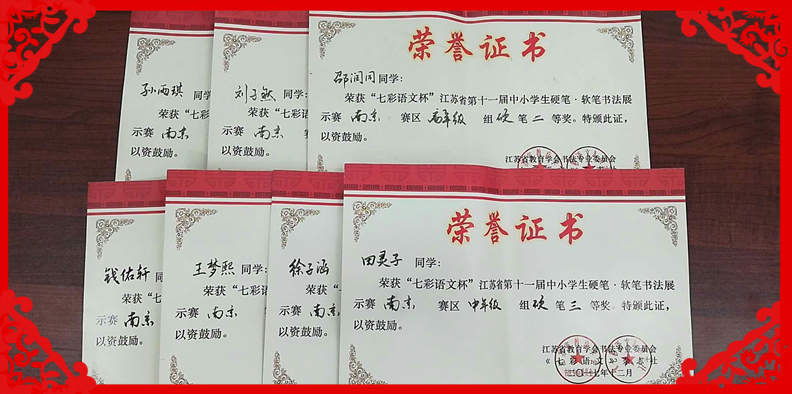 孙雨琪 同学:
荣获"七彩语
示赛 南京
以资鼓励。
刘子然 同学:
荣获"七彩语
示赛 南京
以资鼓励。
荣誉证书
邵润同同学:
荣获"七彩语文杯"江苏省第十一届中小学生硬笔·软笔书法展
示赛 南京 赛区 高年级 组 硬 笔 二 等奖。特颁此证,
以资鼓励。
江苏省教育学会书法专业委员会
钱佑轩 同
荣获
示赛 南京
以资鼓励。
王梦熙 同学:
荣获"七
示赛 南京
以资鼓励。
徐子涵
荣
示赛 南
以资鼓
荣誉证书
田灵子 同学:
荣获"七彩语文杯"江苏省第十一届中小学生硬笔·软笔书法展
示赛 南京 赛区 中年级 组 硬 笔 三 等奖。特颁此证,
以资鼓励。
江苏省教育学会书法专业委员会
《七彩语文》杂志社
二〇一七年十二月